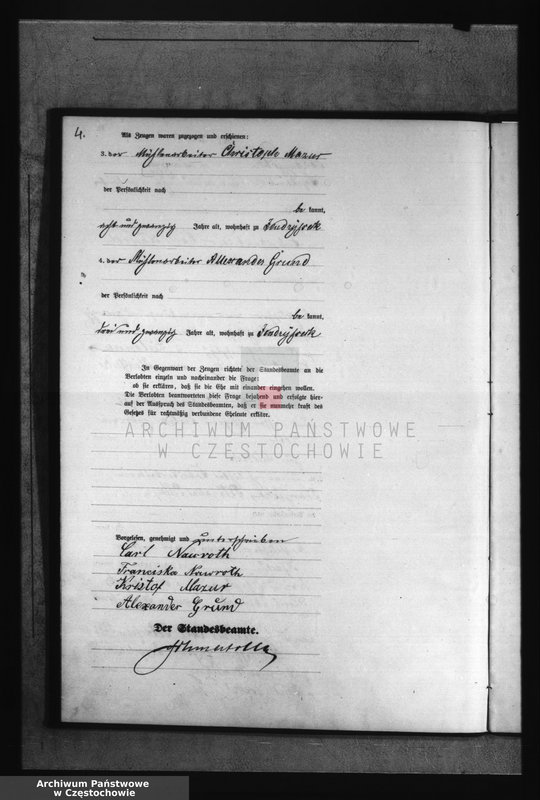 4.
Als Zeugen waren zugezogen und erschienen:
3. der Mühlenarbeiter Christoph Mazur
der Persönlichkeit nach
be kannt,
acht und zwanzig Jahre alt, wohnhaft zu Jendrysek
4. der Mühlenarbeiter Allexander Grund
der Persönlichkeit nach
be kannt,
drei und zwanzig Jahre alt, wohnhaft zu Jendrysek
In Gegenwart der Zeugen richtete der Standesbeamte an die
Verlobten einzeln und nacheinander die Frage:
ob sie erklären, daß sie die Ehe mit einander eingehen wollen.
Die Verlobten beantworteten diese Frage bejahend und erfolgte hier-
auf der Ausspruch des Standesbeamten, daß er sie nunmehr kraft des
Gesetzes für rechtmäßig verbundene Eheleute erkläre.
ARCHIWUM PAŃSTWOWE
W CZĘSTOCHOWIE
Vorgelesen, genehmigt und unterschrieben
Carl Nawroth
Franciska Nawroth
Kristof Mazur
Alexander Grund
Der Standesbeamte.
Archiwum Państwowe
w Częstochowie